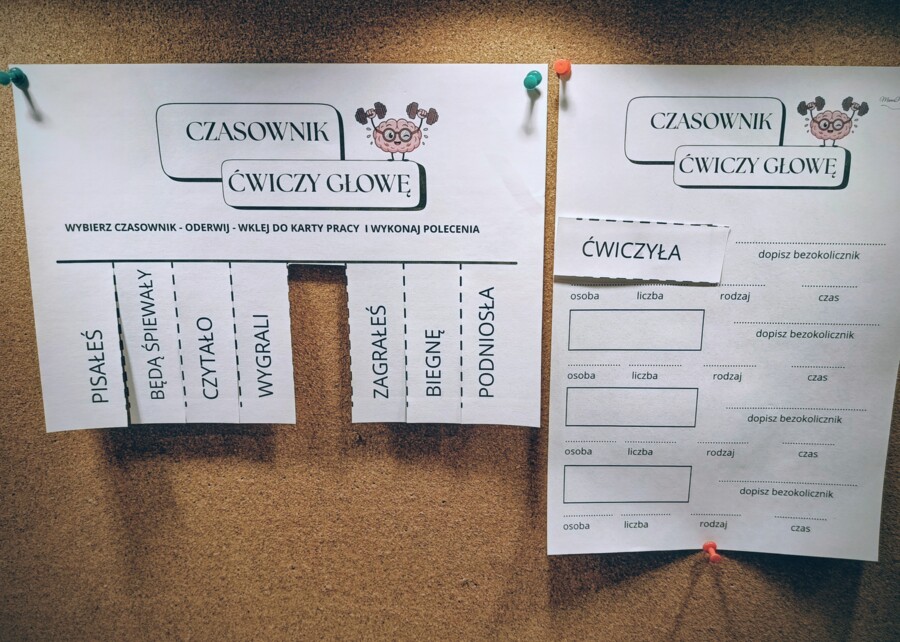 CZASOWNIK
ĆWICZY GŁOWĘ
WYBIERZ CZASOWNIK - ODERWIJ - WKLEJ DO KARTY PRACY I WYKONAJ POLECENIA
PISAŁEŚ
BĘDĄ ŚPIEWAŁY
CZYTAŁO
WYGRALI
ZAGRAŁEŚ
BIEGNĘ
PODNIOSŁA
CZASOWNIK
ĆWICZY GŁOWĘ
ĆWICZYŁA
dopisz bezokolicznik
osoba liczba rodzaj czas
dopisz bezokolicznik
osoba liczba rodzaj czas
dopisz bezokolicznik
osoba liczba rodzaj czas
dopisz bezokolicznik
osoba liczba rodzaj czas